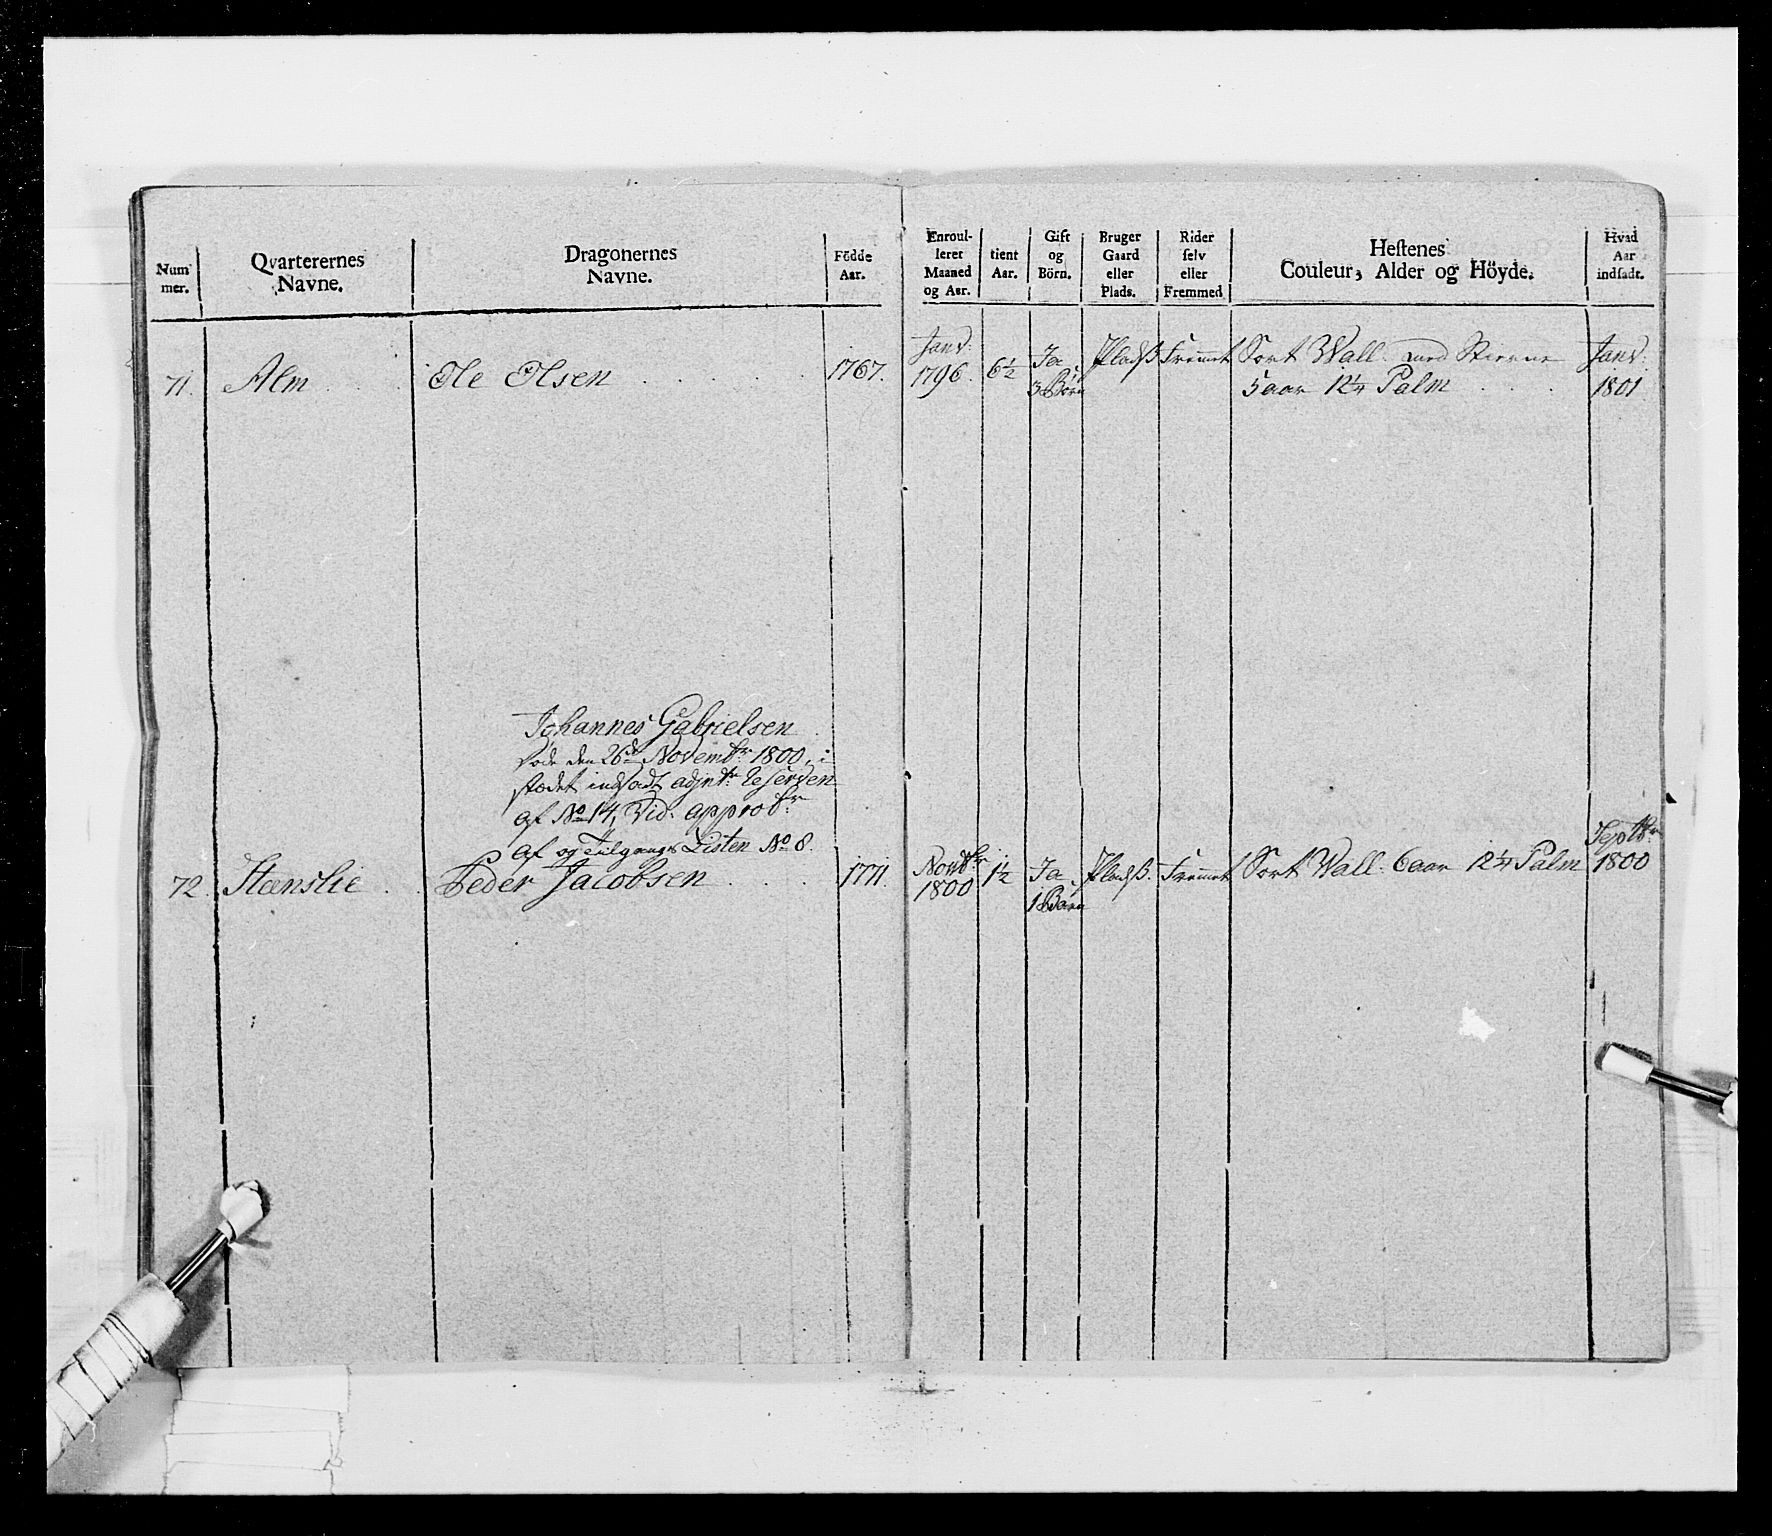 Num
mer.
Qvarterernes
Navne.
Dragonernes
Navne.
Födde
Aar.
Enroul-
leret
Maaned
og Aar.
tient
Aar.
Gift
og
Börn.
Bruger
Gaard
eller
Plads.
Rider
selv
eller
Fremmed
Hestenes
Couleur, Alder og Höyde.
Hvad
Aar
indsadt.
71. Alm Ole Olsen 1767.
Janv:
1796.
6½
Ja
3 Börn
Pladß
Fremmet
Sort Wall. med Stierne
5 aar 12¼ Palm
Janv:
1801
Johannes Gabrielsen
döde den 26de Novembr 1800, i
stædet indsadt reserven
af No 14, vid. approbr
af og Tilgangs Listen No 8.
72. Steenslie Peder Jacobsen 1771.
Novbr
1800
1½
Ja
1 Barn
Pladß.
Fremmet
Sort Wall. 6 aar 12¼ Palm
Septbr
1800